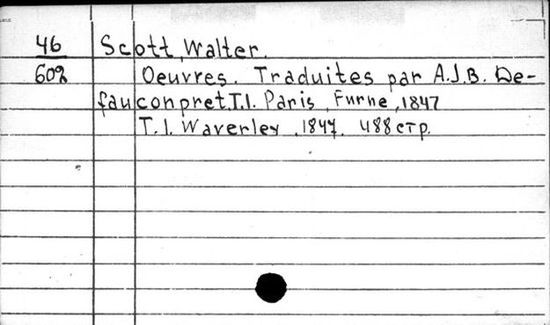 46 Scott, Walter.
602 Oeuvres. Traduites par A.J.B. De-
fauconpret. T.1. Paris, Furne, 1847
T.1. Waverley, 1847. 488 стр.